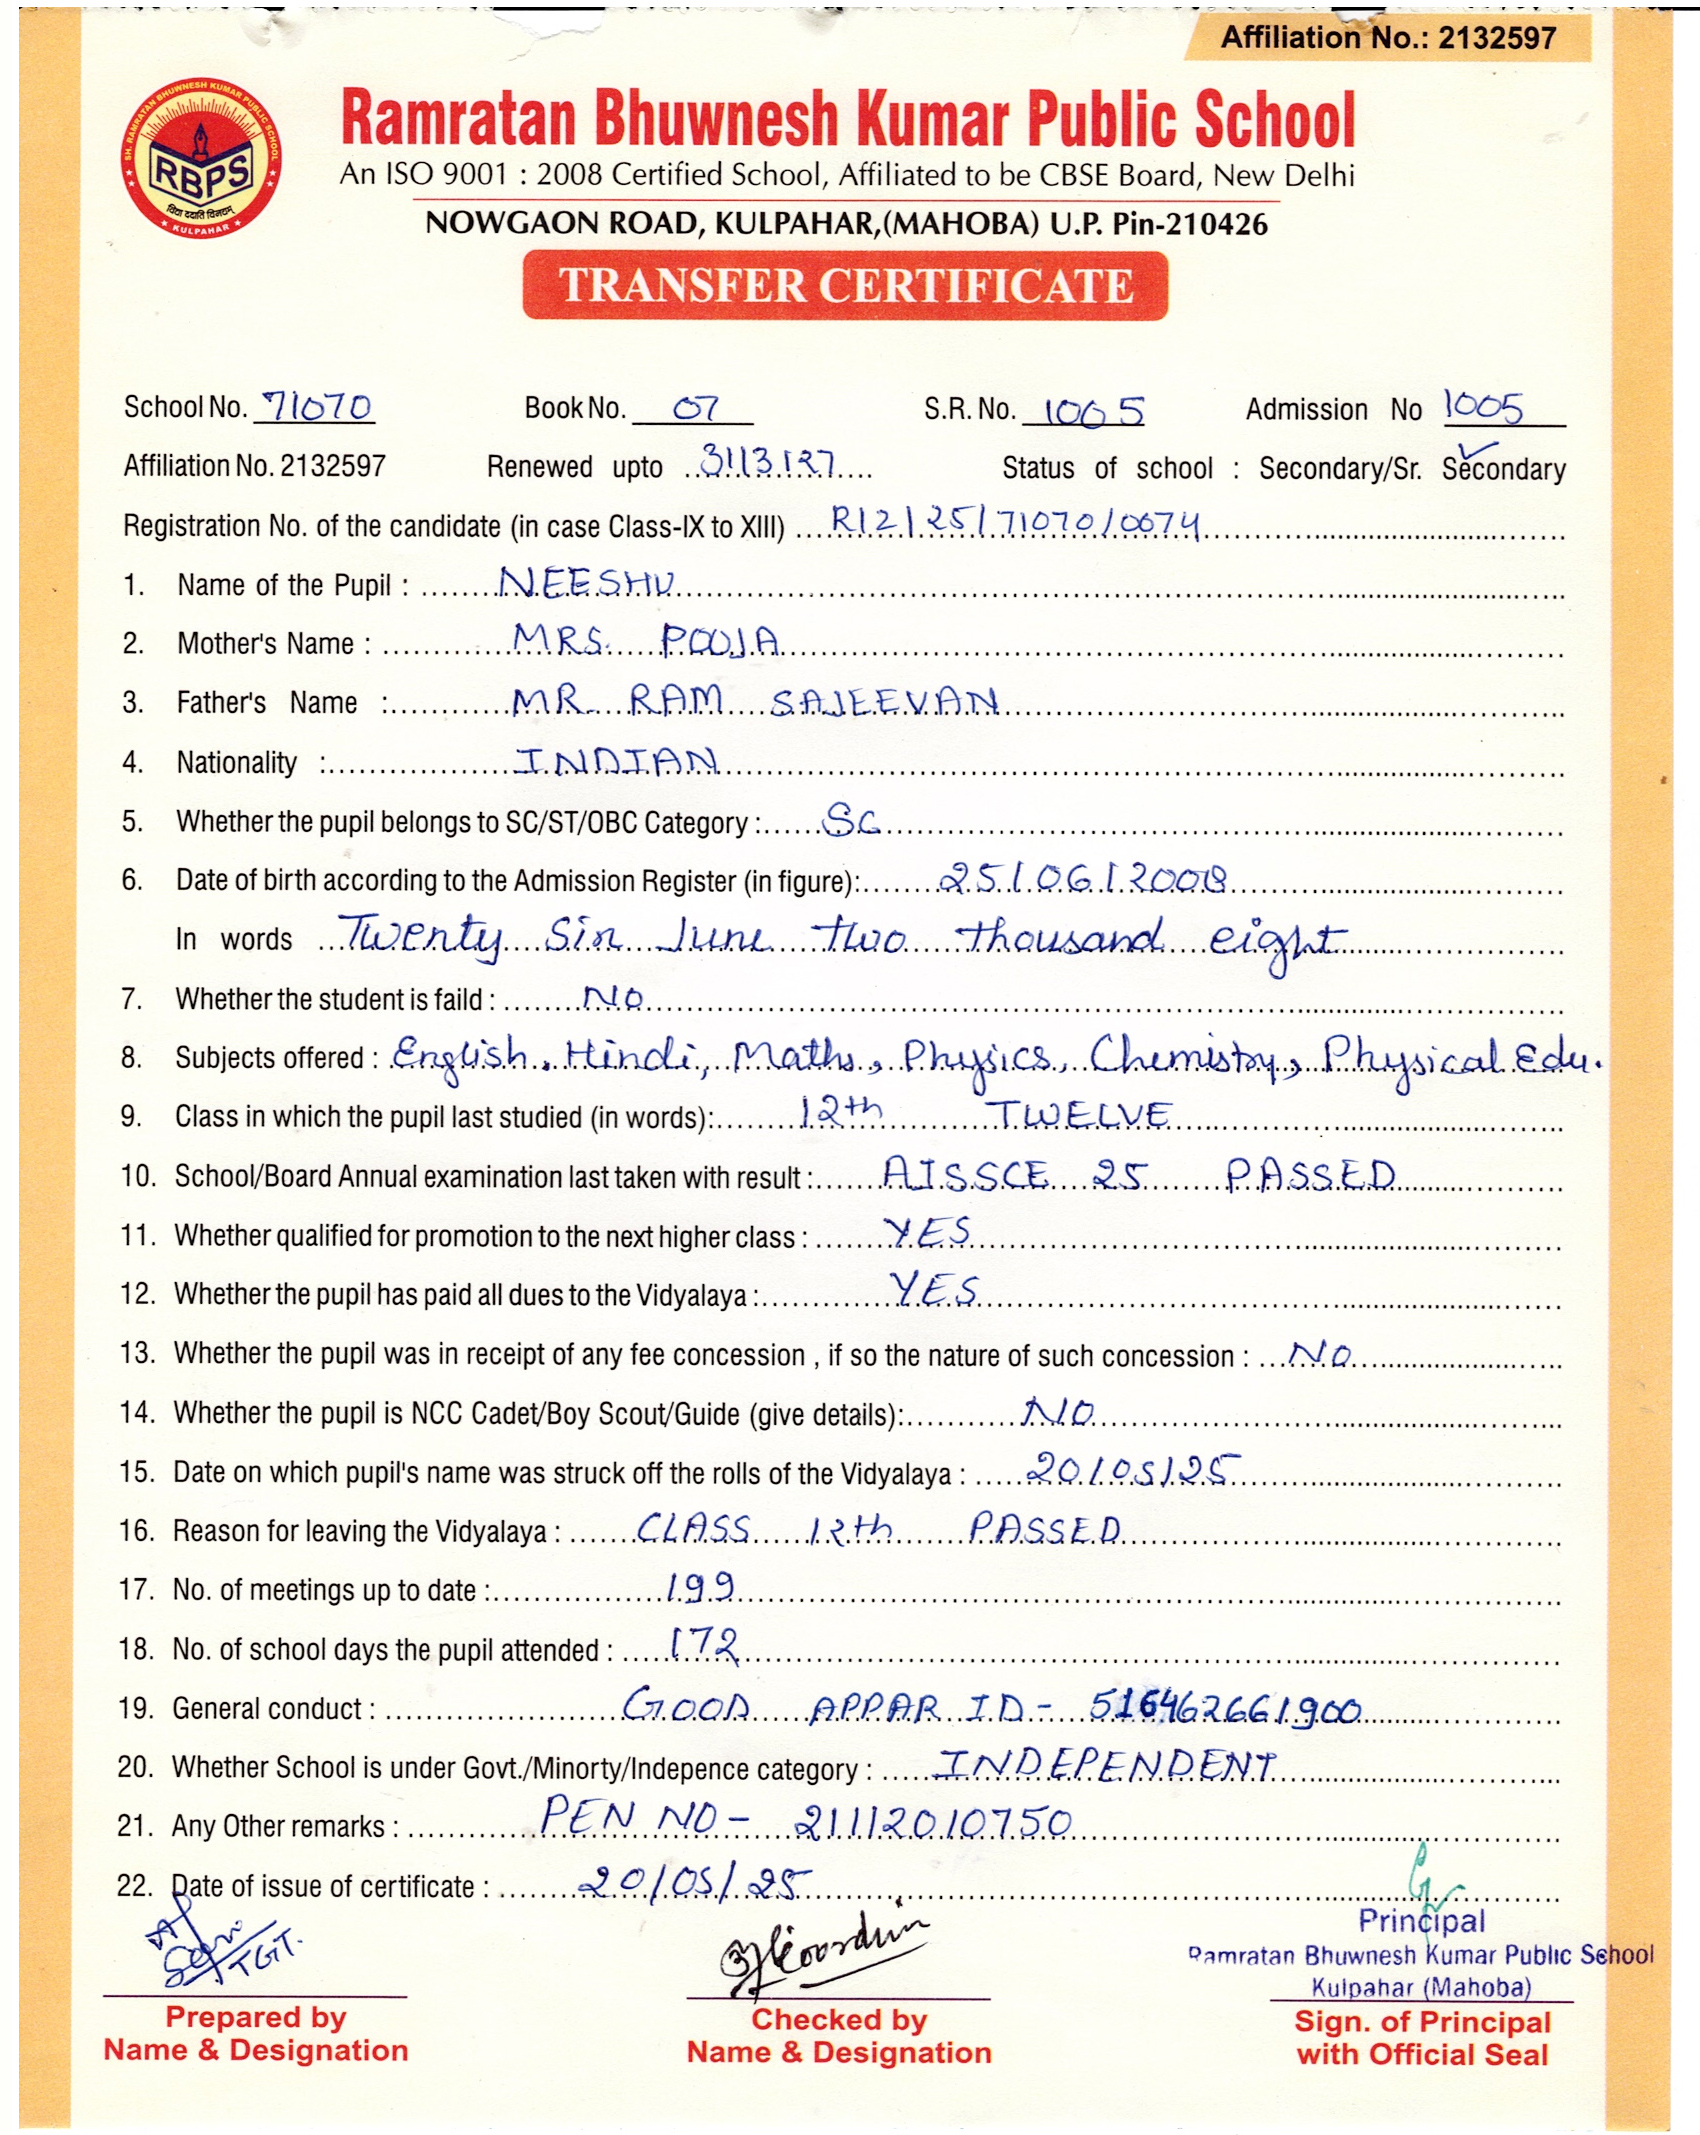 Affiliation No.: 2132597
SH. RAMRATAN BHUWNESH KUMAR PUBLIC SCHOOL
RBPS
विद्या ददाति विनयम्
KULPAHAR
Ramratan Bhuwnesh Kumar Public School
An ISO 9001 : 2008 Certified School, Affiliated to be CBSE Board, New Delhi
NOWGAON ROAD, KULPAHAR,(MAHOBA) U.P. Pin-210426
TRANSFER CERTIFICATE
School No. 71070 Book No. 07 S.R. No. 1005 Admission No 1005
Affiliation No. 2132597 Renewed upto 31/3/27 Status of school : Secondary/Sr. Secondary
Registration No. of the candidate (in case Class-IX to XIII) R12/25/71070/0074
1. Name of the Pupil : NEESHU
2. Mother's Name : MRS. POOJA
3. Father's Name : MR. RAM SAJEEVAN
4. Nationality : INDIAN
5. Whether the pupil belongs to SC/ST/OBC Category : SC
6. Date of birth according to the Admission Register (in figure): 25/06/2008
In words Twenty Sin June two thousand eight
7. Whether the student is faild : NO
8. Subjects offered : English, Hindi, Maths, Physics, Chemistry, Physical Edu.
9. Class in which the pupil last studied (in words): 12th TWELVE
10. School/Board Annual examination last taken with result : AISSCE 25 PASSED
11. Whether qualified for promotion to the next higher class : YES
12. Whether the pupil has paid all dues to the Vidyalaya : YES
13. Whether the pupil was in receipt of any fee concession , if so the nature of such concession : NO
14. Whether the pupil is NCC Cadet/Boy Scout/Guide (give details): NO
15. Date on which pupil's name was struck off the rolls of the Vidyalaya : 20/05/25
16. Reason for leaving the Vidyalaya : CLASS 12th PASSED
17. No. of meetings up to date : 199
18. No. of school days the pupil attended : 172
19. General conduct : GOOD APPAR ID - 516462661900
20. Whether School is under Govt./Minorty/Indepence category : INDEPENDENT
21. Any Other remarks : PEN NO - 21112010750
22. Date of issue of certificate : 20/05/25
TGT.
Principal
Ramratan Bhuwnesh Kumar Public School
Kulpahar (Mahoba)
Prepared by
Name & Designation
Checked by
Name & Designation
Sign. of Principal
with Official Seal